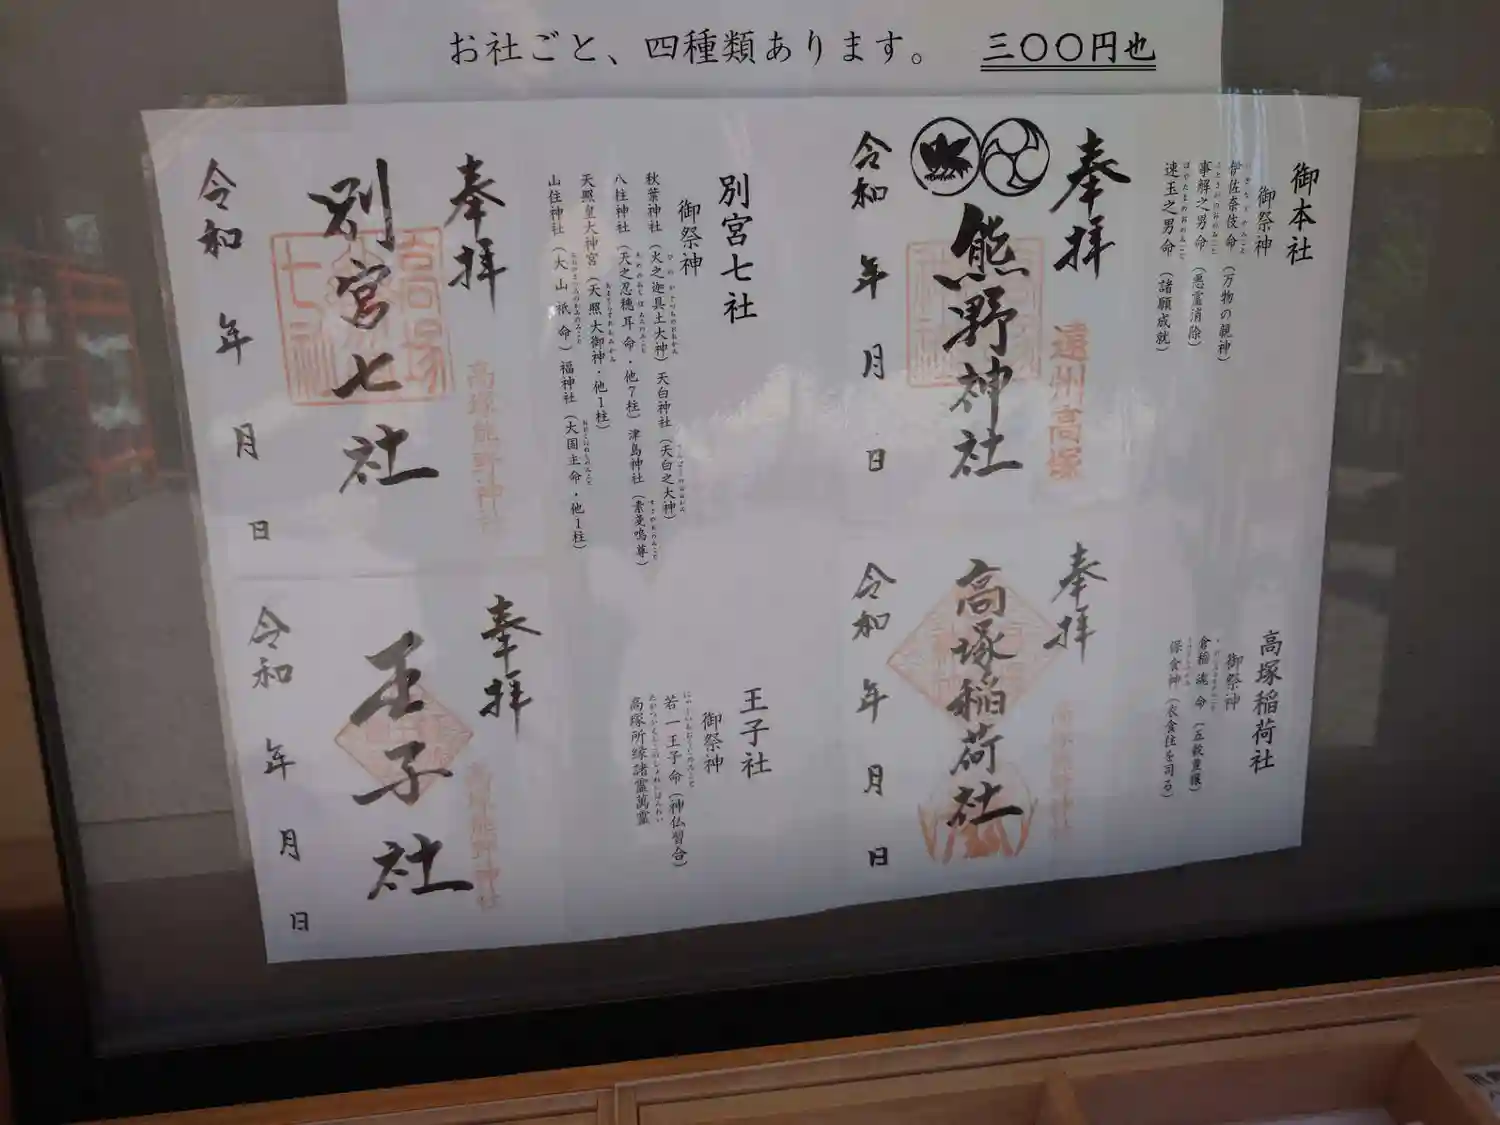 お社ごと、四種類あります。 三〇〇円也
御本社
御祭神
伊佐奈伎命（万物の親神）
事解之男命（悪霊消除）
速玉之男命（諸願成就）
奉拝
遠州高塚
熊野神社
令和 年 月 日
別宮七社
御祭神
秋葉神社（火之迦具土大神）天白神社（天白之大神）
八柱神社（天之忍穂耳命・他7柱）津島神社（素戔嗚尊）
天照皇大神宮（天照大御神・他1柱）
山住神社（大山祇命）福神社（大国主命・他1柱）
奉拝
高塚熊野神社
別宮七社
高塚
七社
令和 年 月 日
高塚稲荷社
御祭神
倉稲魂命（五穀豊穣）
保食神（衣食住を司る）
奉拝
高塚稲荷社
令和 年 月 日
王子社
御祭神
若一王子命（神仏習合）
高塚所縁諸霊萬霊
奉拝
高塚熊野神社
王子社
令和 年 月 日